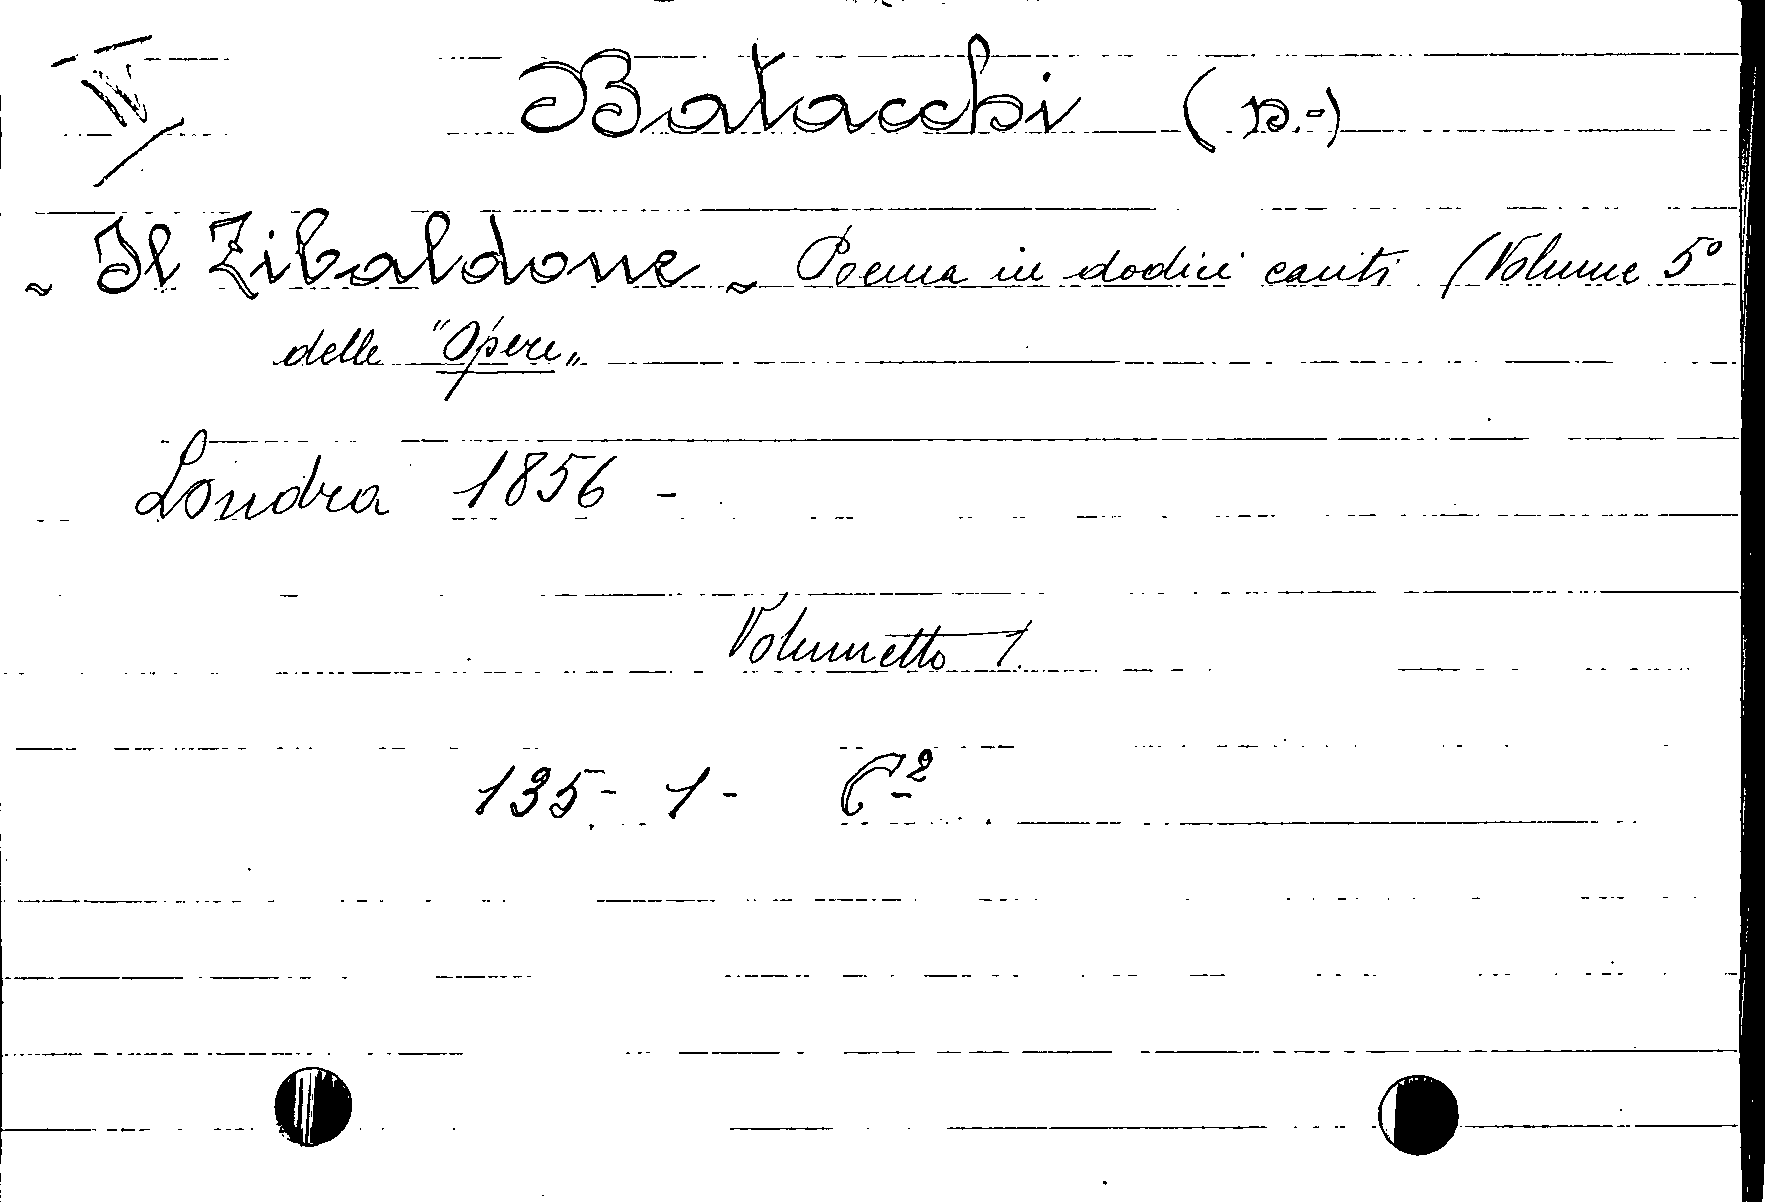 IV
Batacchi (D.-)
~ Il Zibaldone ~ Poema in dodici canti (Volume 5°
delle "Opere„
Londra 1856 -
Volumetto 1.
135- 1- C²